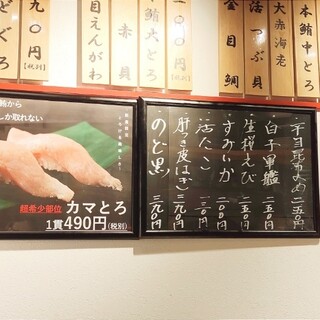 本鮪中とろ
大赤海老
活つぶ貝
金目鯛
本鮪大とろ
一〇〇円
【税別】
赤貝
大目えんがわ
九〇円
【税別】
どぐろ
鮪から
しか取れない
超希少部位 カマとろ
1貫490円(税別)
平目昆布〆 二五〇円
白子軍艦 二五〇円
生桜えび 二五〇円
すみいか 二〇〇円
活たこ 二三〇円
肝つき皮はぎ 三九〇円
のど黒 三九〇円